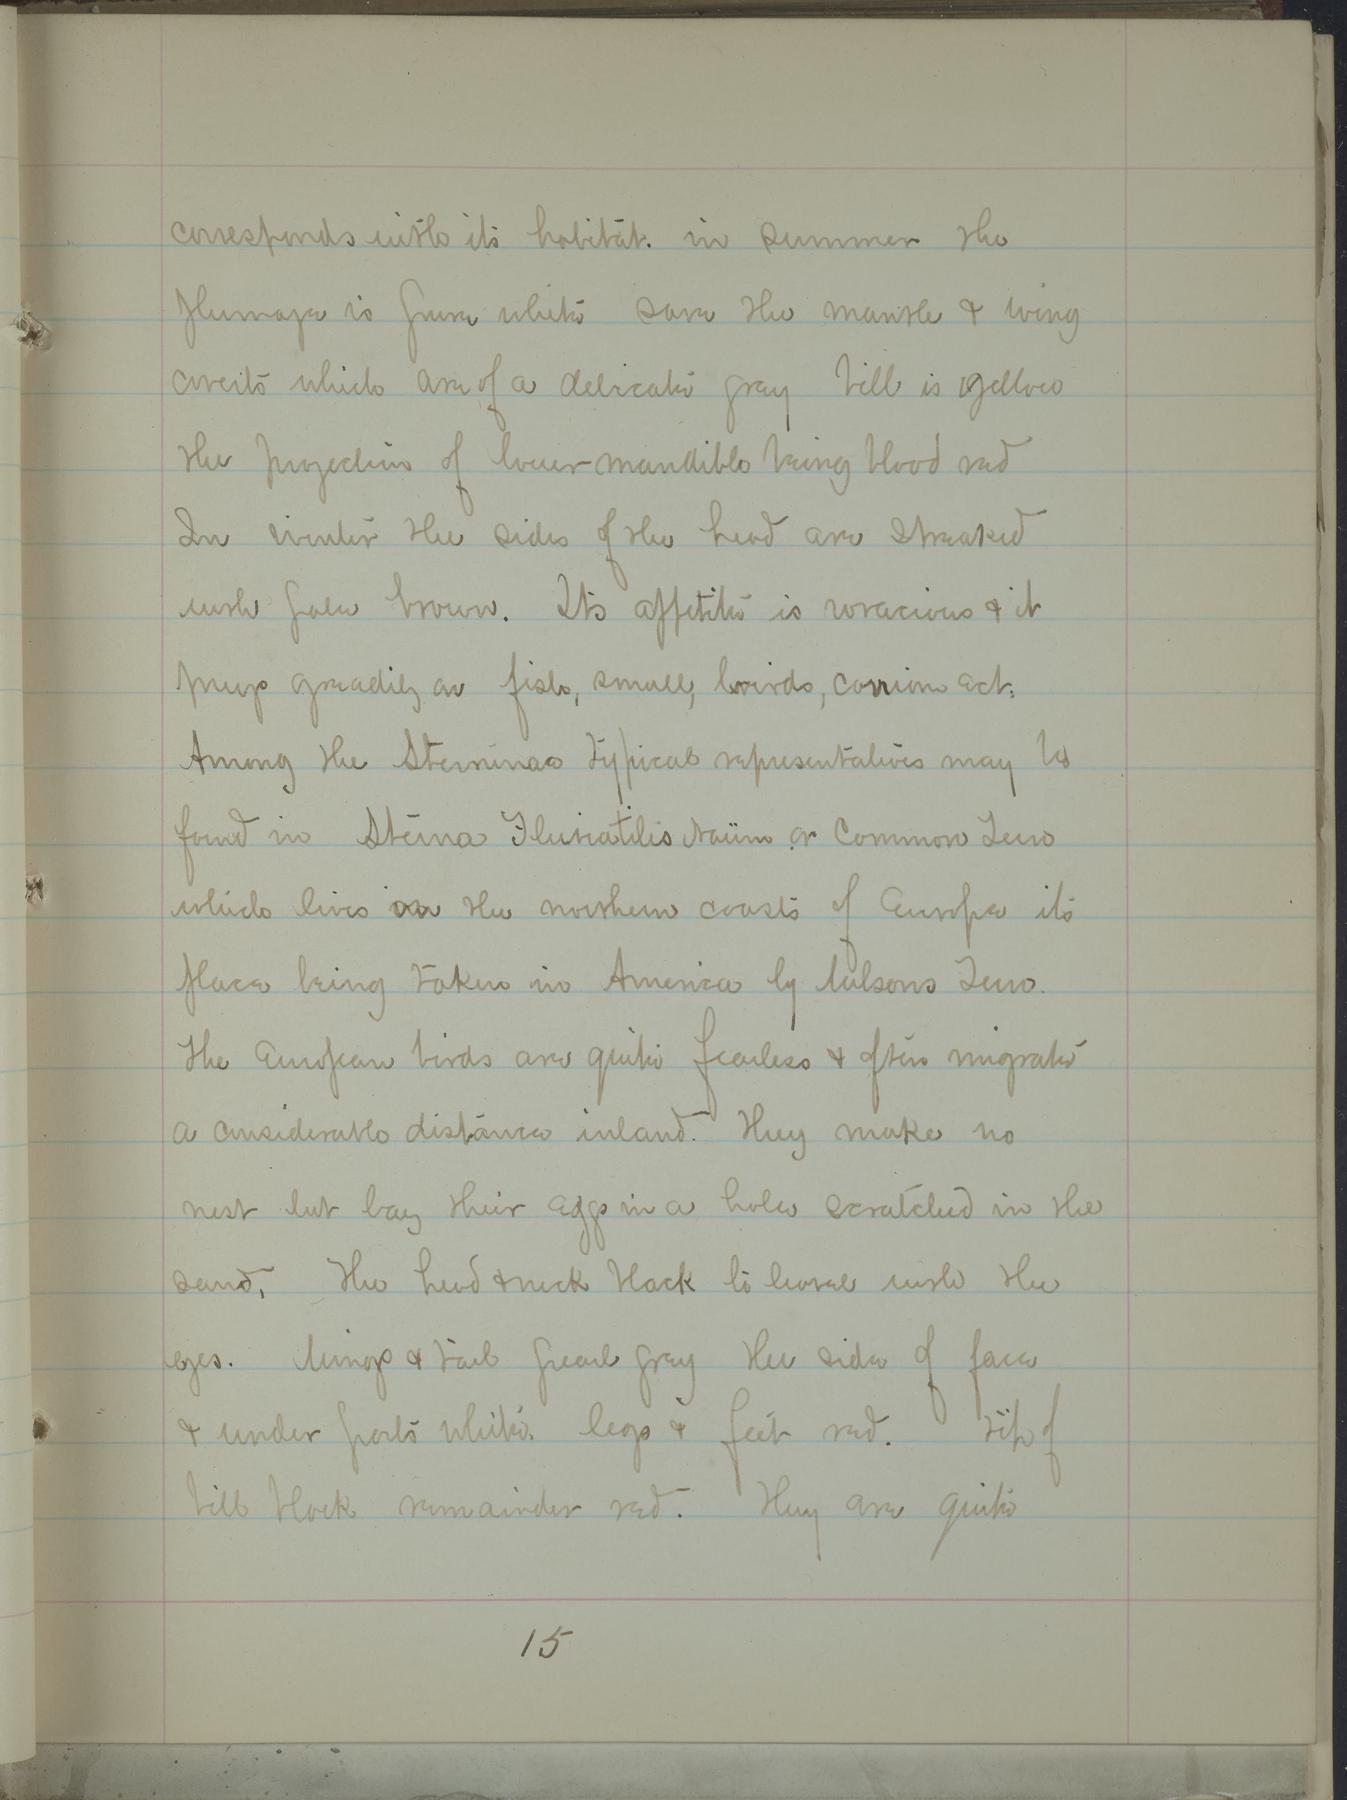 corresponds with its habitat. in summer the
plumage is pure white save the mantle & wing
coverts which are of a delicate gray bill is yellow
the projection of lower mandible being blood red
In winter the sides of the head are streaked
with pale brown. Its appetite is voracious & it
preys greadily on fish, small, birds, carrion ect.
Among the Sterninae typical representatives may be
found in Sterna Fluviatilis Naüm or Common Tern
which lives on the northern coasts of Europe its
place being taken in America by Wilsons Tern.
The European birds are quite fearless & often migrate
a considerable distance inland. They make no
nest but lay their eggs in a hole scratched in the
sand, The head & neck black to level with the
eyes. Wings & tail pearl gray the side of face
& under parts white. legs & feet red. tip of
bill black remainder red. They are quite
15